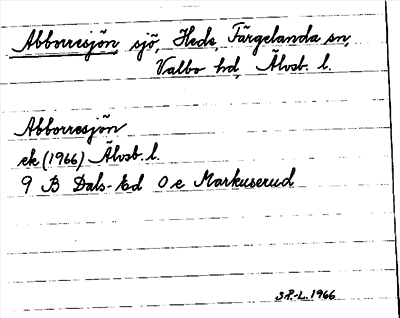 Abborresjön, sjö, Hede, Färgelanda sn,
Valbo hd, Älvsb. l.
Abborresjön
ek (1966) Älvsb. l.
9 B Dals-Ed O e Markuserud
S.P.-L. 1966